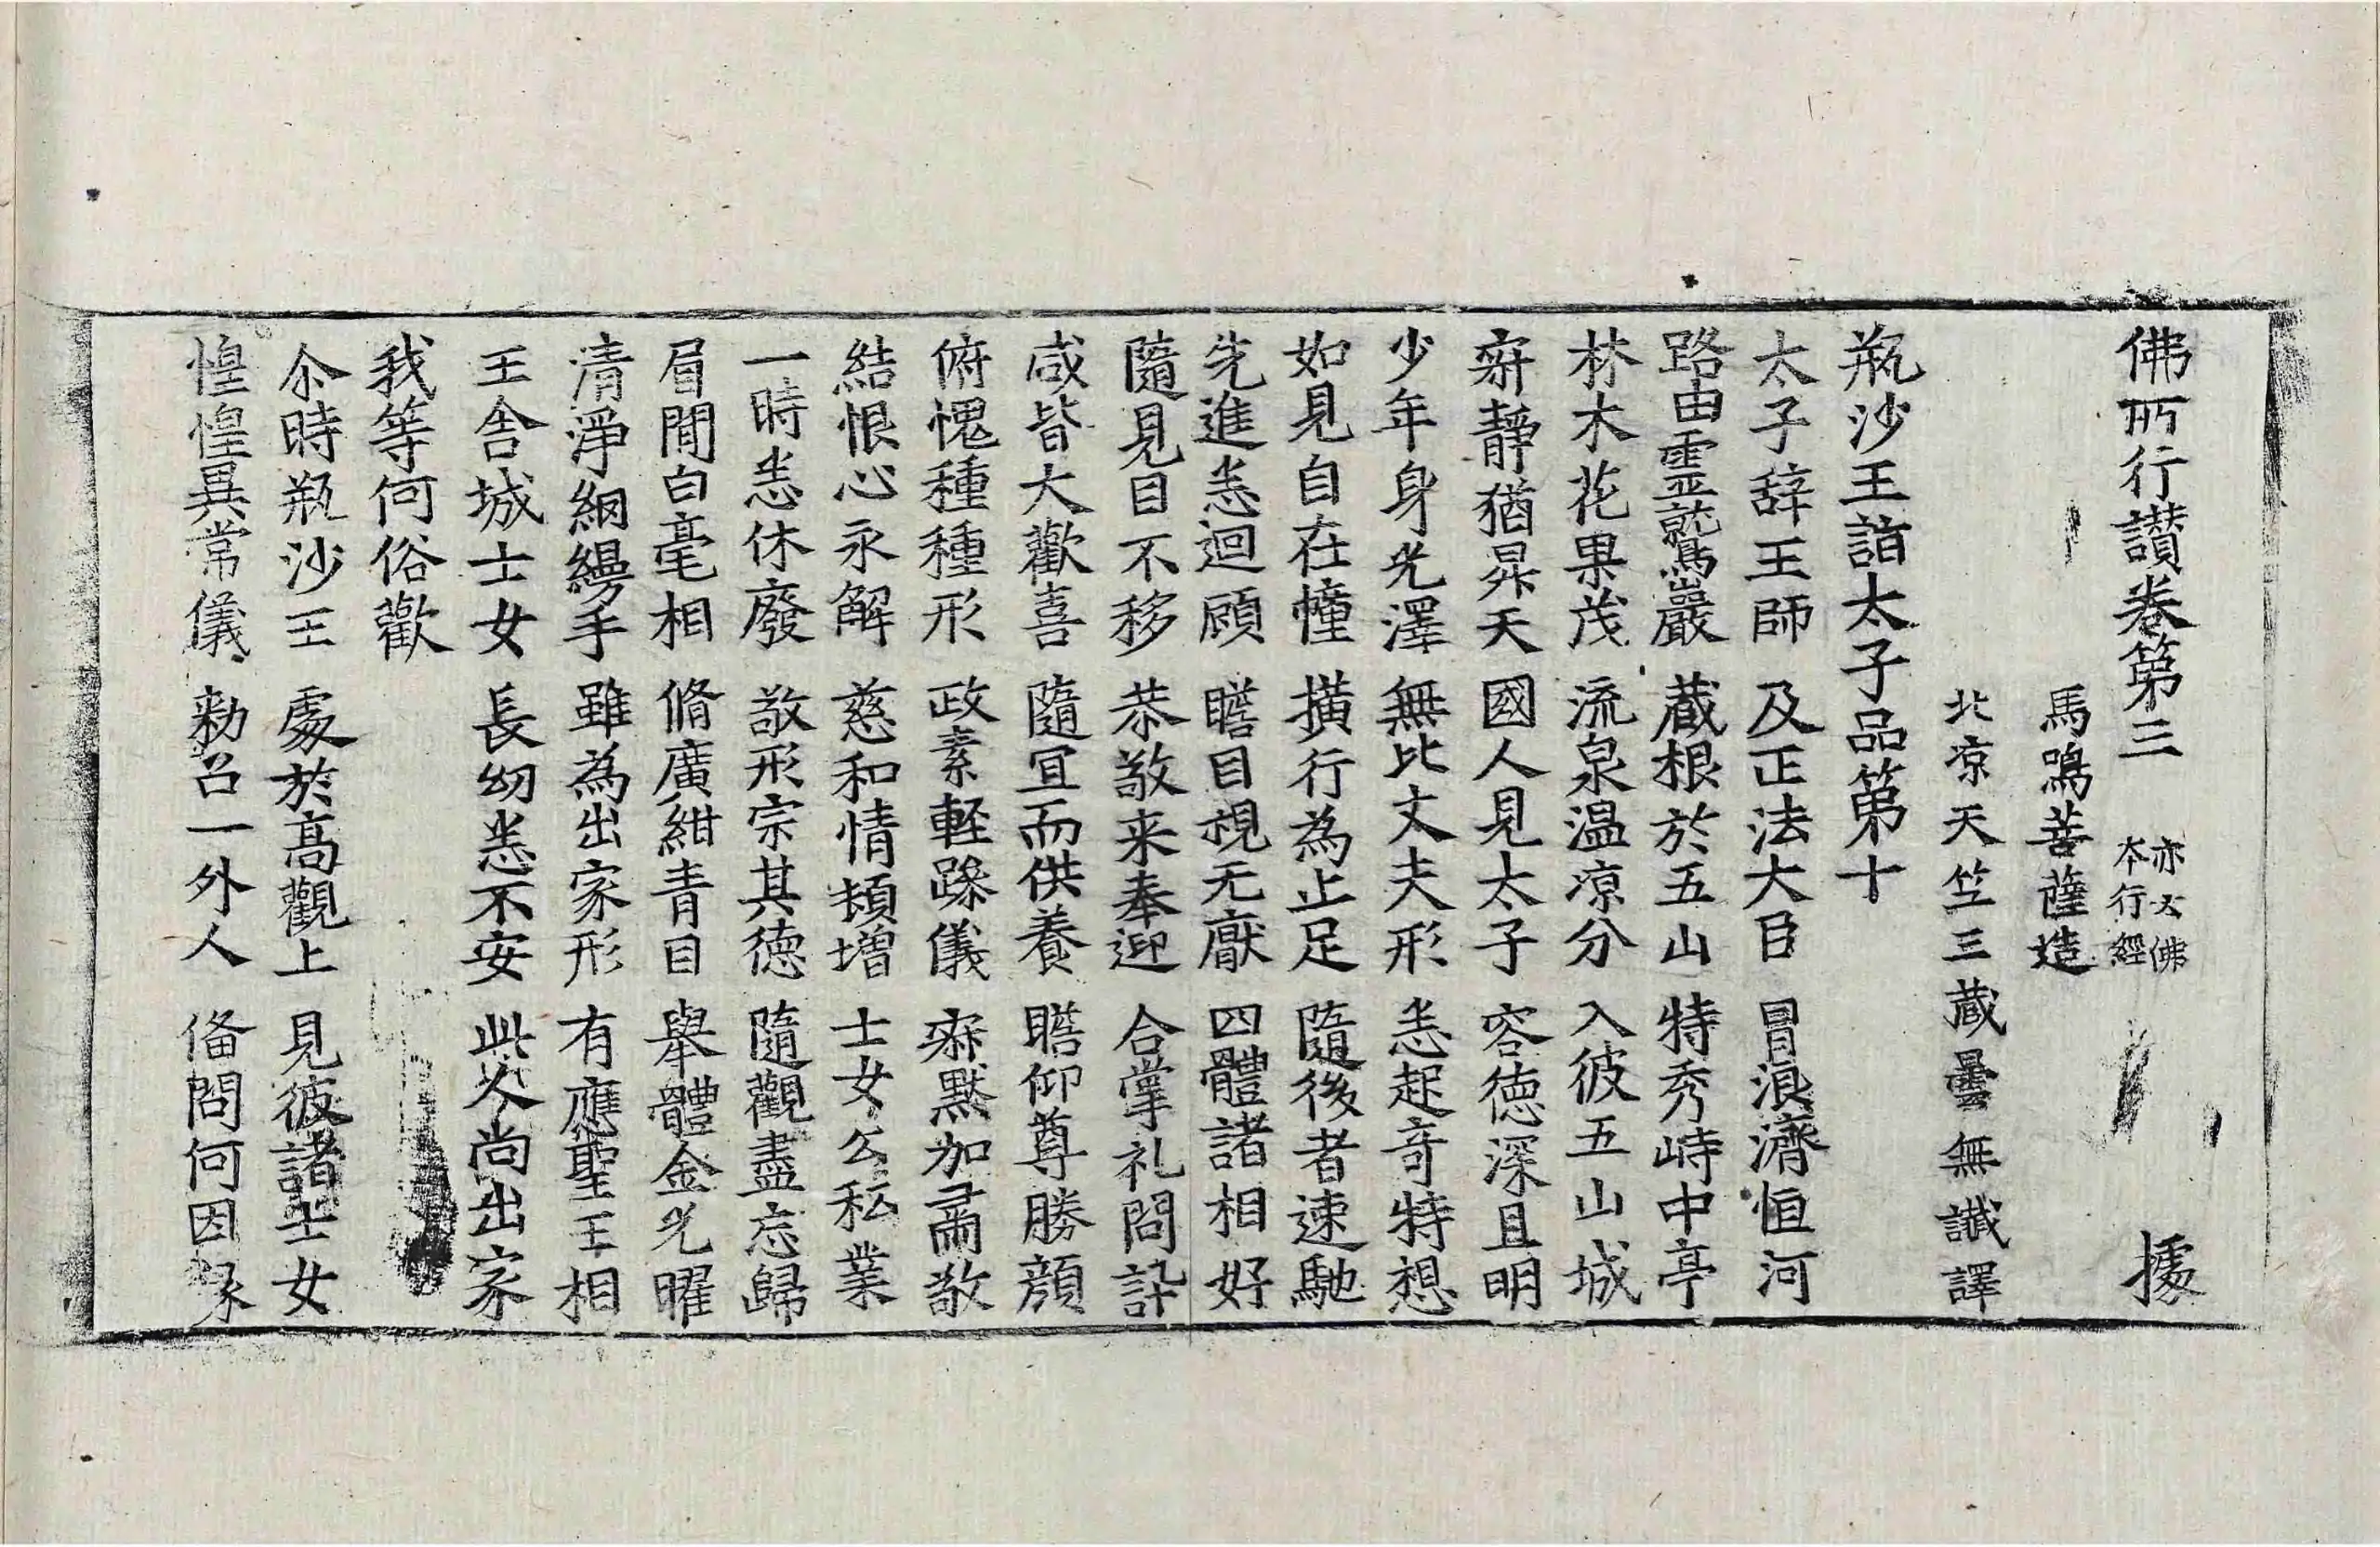 佛所行讃卷第三 亦云佛本行經 據
馬鳴菩薩造
北凉天竺三蔵曇無讖譯
瓶沙王詣太子品第十
太子辞王師 及正法大臣 冒浪濟恒河
路由靈鷲巖 蔵根於五山 特秀峙中亭
林木花果茂 流泉温凉分 入彼五山城
寂静猶昇天 國人見太子 容德深且明
少年身光澤 無比丈夫形 悉起奇特想
如見自在幢 横行為止足 隨後者速馳
先進悉迴顧 瞻目視无厭 四體諸相好
隨見目不移 恭敬来奉迎 合掌礼問訊
咸皆大歡喜 隨冝而供養 瞻仰尊勝顔
俯愧種種形 政素軽躁儀 寂黙加肅敬
結恨心永解 慈和情頓增 士女公私業
一時悉休廢 敬形宗其德 隨觀盡忘歸
眉間白毫相 脩廣紺青目 舉體金光曜
清淨綱縵手 雖為出家形 有應聖王相
王舍城士女 長幼悉不安 此人尚出家
我等何俗歡
尒時瓶沙王 處於高觀上 見彼諸士女
惶惶異常儀 勑召一外人 俻問何因縁